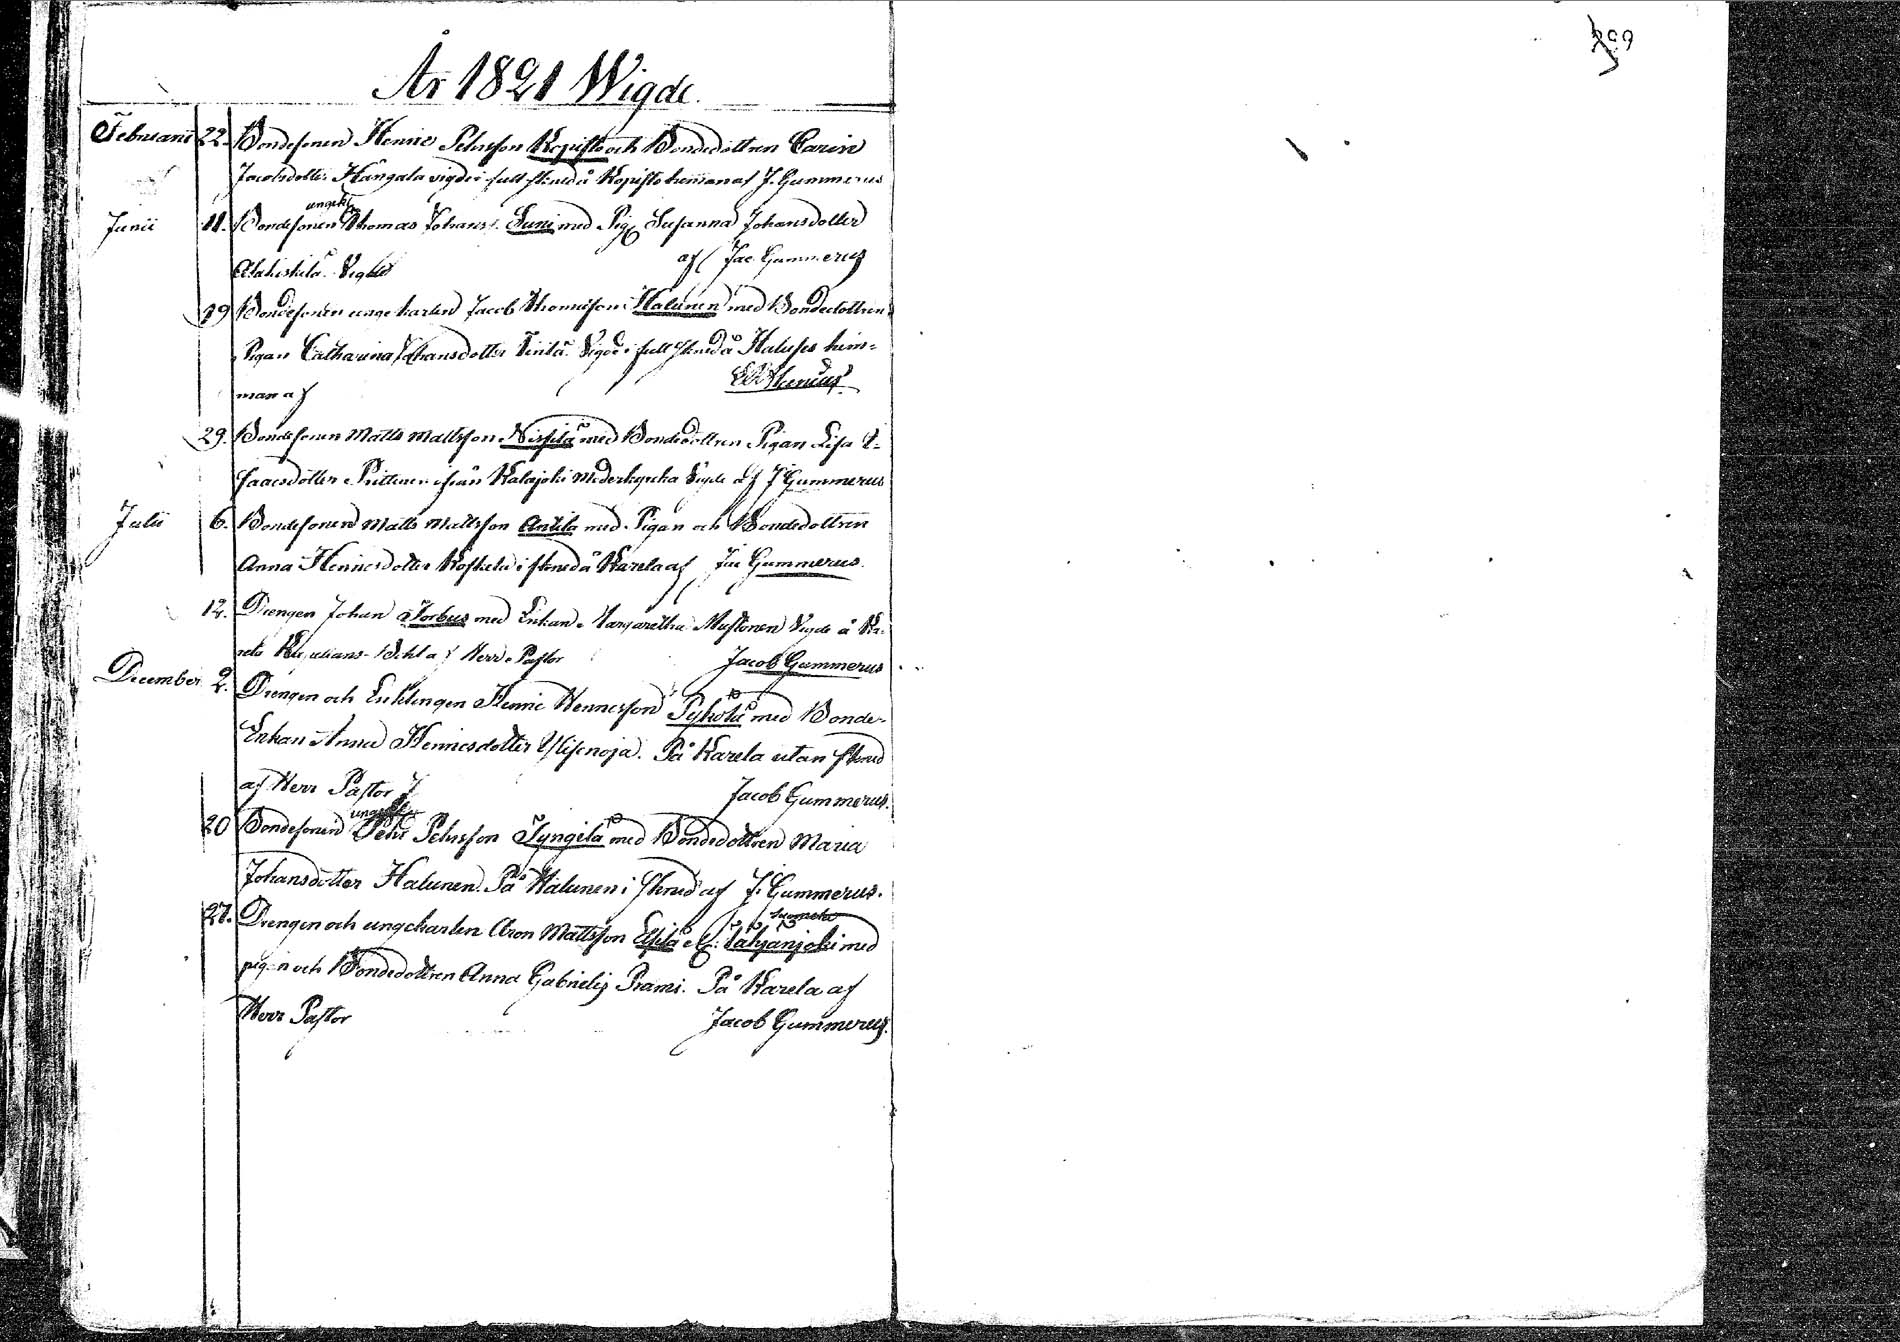 År 1821 Wigde.
Februarii 22. Bondesonen Henric Pehrsson Kopisto och Bondedottren Carin
Jacobsdotter Hångala vigde i full skrud å Kopisto heman af J. Gummerus
ungek.
Junii 11. Bondesonen Thomas Johans. Suni med Pig. Susanna Johansdotter
Alakiskilä. Vigde af Jac Gummerus
19 Bondesonen ungekarlen Jacob Thomsson Halunen med Bondedottren
Pigan Catharina Johansdotter Tintä. Vigde i full skrud å Haluses hem-
man af
29. Bondesonen Matts Mattsson Nissilä med Bondedottren Pigan Lisa I-
saacsdotter Prittinen ifrån Kalajoki Moderkyrka Vigde af J Gummerus
Julii 6. Bondesonen Matts Mattsson Antila med Pigan och Bondedottren
Anna Henricsdotter Koskela i skrud å Karela af Jac Gummerus.
12. Drengen Johan Torbus med Enkan Margaretha Mustonen Vigde å Ka-
rela af Herr Pastor Jacob Gummerus
December 2. Drengen och Enklingen Henric Henricsson Pyhälä med Bonde-
Enkan Anna Henricsdotter Ylisenoja. På Karela utan skrud
af Herr Pastor J Jacob Gummerus.
20 Bondesonen Pehr Pehrsson Tyngilä med Bondedottren Maria
Johansdotter Halunen. På Halunen i skrud af J. Gummerus.
Suomela
27. Drengen och ungekarlen Aron Mattsson Elsilä med
pigan och Bondedottren Anna Gabriels Prami. På Karela af
Herr Pastor Jacob Gummerus.